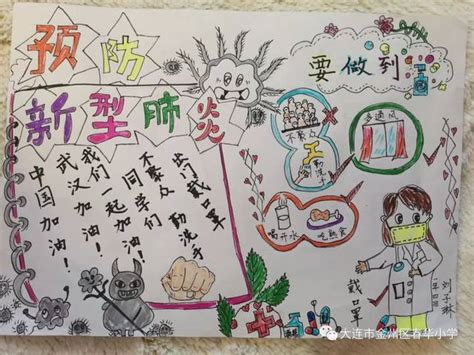 预防
新型肺炎
出门戴口罩
勤洗手
不聚众
同学们
我们一起加油!
武汉加油!
中国加油!
要做到:
不聚众
勤洗手
多通风
喝开水
吃熟食
戴口罩
大连市金州区春华小学